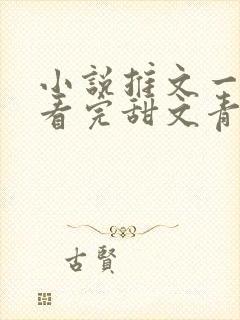 小説推文一
看完甜文青
古賢